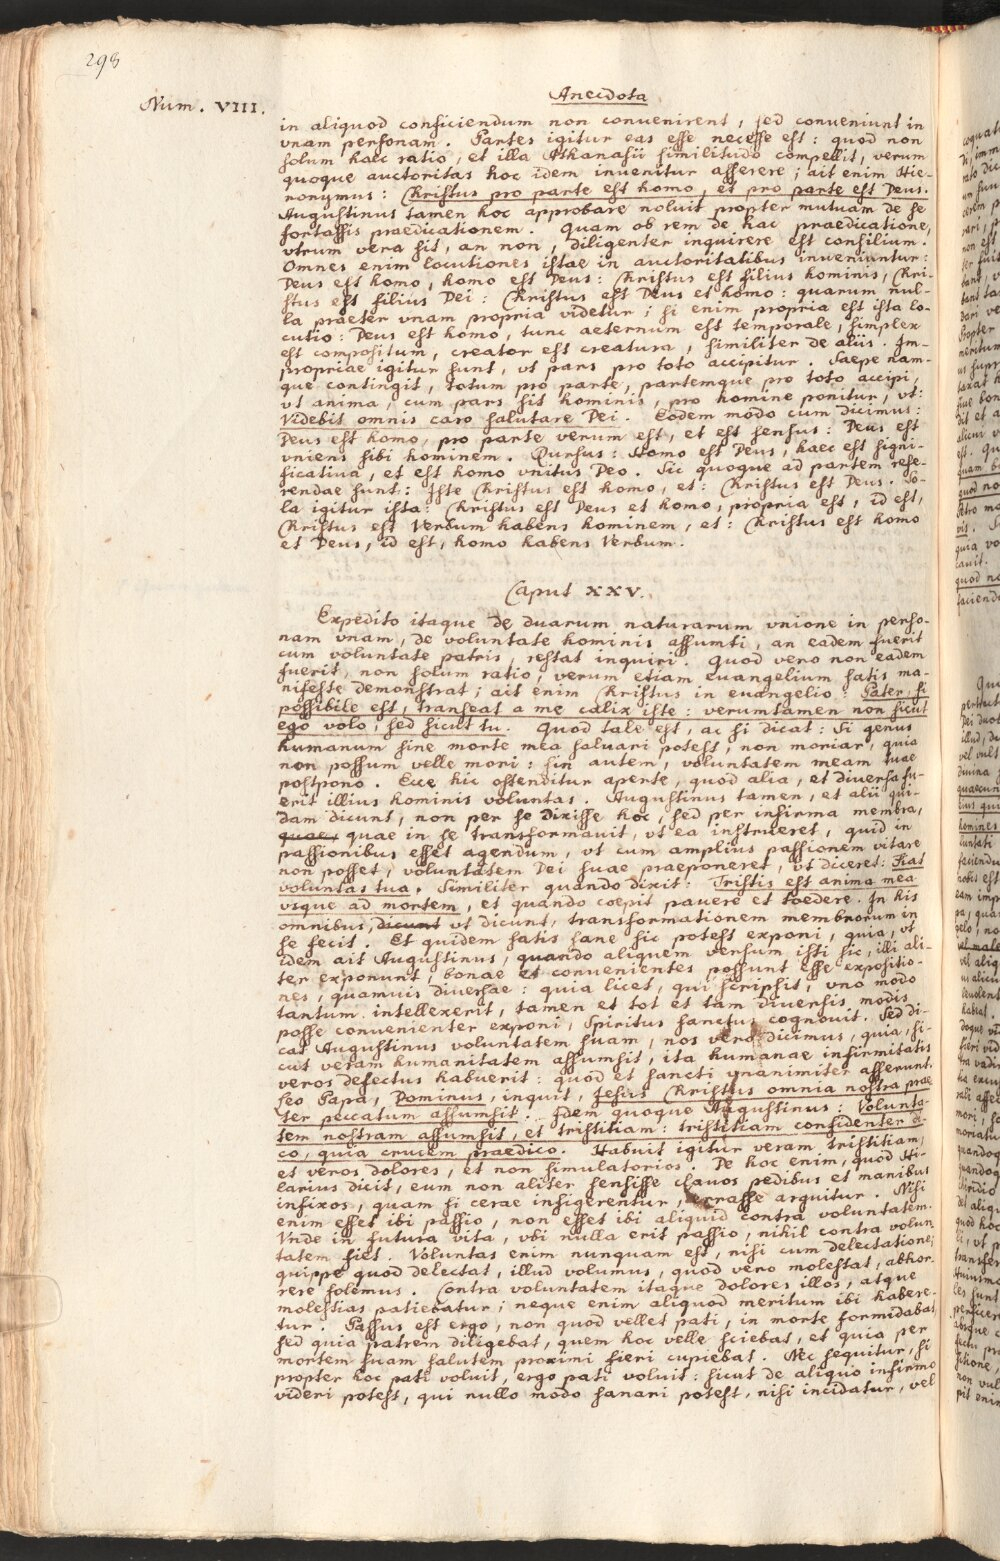 298
Num. VIII.
Anecdota
in aliquod conficiendum non convenirent, sed conveniunt in
vnam personam. Partes igitur eas esse necesse est: quod non
solum haec ratio, et illa Athanasii similitudo compellit, verum
quoque auctoritas hoc idem invenitur asserere; ait enim Hie-
ronymus: Christus pro parte est homo, et pro parte est Deus.
Augustinus tamen hoc approbare noluit propter mutuam de se
fortassis praedicationem. Quam ob rem de hac praedicatione,
vtrum vera sit, an non, diligenter inquirere est consilium.
Omnes enim locutiones istae in auctoritatibus inveniuntur:
Deus est homo, homo est Deus: Christus est filius hominis, Chri-
stus est filius Dei: Christus est Deus et homo: quarum nul-
la praeter vnam propria videtur; si enim propria est ista lo-
cutio: Deus est homo, tunc aeternum est temporale, simplex
est compositum, creator est creatura, similiter de aliis. Im-
propriae igitur sunt, vt pars pro toto accipitur. Saepe nam-
que contingit, totum pro parte, partemque pro toto accipi,
vt anima, cum pars sit hominis, pro homine ponitur, vt:
Videbit omnis caro salutare Dei. Eodem modo cum dicimus:
Deus est homo, pro parte verum est, et est sensus: Deus est
vniens sibi hominem. Rursus: Homo est Deus, haec est signi-
ficatiua, et est homo vnitus Deo. Sic quoque ad partem refe-
rendae sunt: Iste Christus est homo, et: Christus est Deus. So-
la igitur ista: Christus est Deus et homo, propria est, id est,
Christus est Verbum habens hominem, et: Christus est homo
et Deus, id est, homo habens Verbum.
Caput XXV.
Expedito itaque de duarum naturarum vnione in perso-
nam vnam, de voluntate hominis assumti, an eadem fuerit
cum voluntate patris, restat inquiri. Quod vero non eadem
fuerit, non solum ratio, verum etiam euangelium satis ma-
nifeste demonstrat; ait enim Christus in euangelio: Pater, si
possibile est, transeat a me calix iste: verumtamen non sicut
ego volo, sed sicut tu. Quod tale est, ac si dicat: Si genus
humanum sine morte mea saluari potest, non moriar, quia
non possum velle mori: sin autem, voluntatem meam tuae
postpono. Ecce hic ostenditur aperte, quod alia, et diuersa fu-
erit illius hominis voluntas. Augustinus tamen, et alii qui-
dam dicunt, non per se dixisse hoc, sed per infirma membra,
quae, quae in se transformauit, vt ea instrueret, quid in
passionibus esset agendum, vt cum amplius passionem vitare
non posset, voluntatem Dei suae praeponeret, vt diceret: Fiat
voluntas tua. Similiter quando dixit: Tristis est anima mea
vsque ad mortem, et quando coepit pauere et toedere. In his
omnibus, dicunt vt dicunt, transformationem membrorum in
se fecit. Et quidem satis sane sic potest exponi, quia, vt
idem ait Augustinus, quando aliquem versum isti sic, illi ali-
ter exponunt, bonae et convenientes possunt esse expositio-
nes, quamuis diuersae: quia licet, qui scripsit, vno modo
tantum intellexerit, tamen et tot et tam diuersis modis
posse convenienter exponi, Spiritus sanctus cognouit. Sed di-
cat Augustinus voluntatem suam, nos vero dicimus, quia, si-
cut veram humanitatem assumsit, ita humanae infirmitatis
veros defectus habuerit: quod et sancti vnanimiter asserunt.
Leo Papa, Dominus, inquit, Jesus Christus omnia nostra prae
ter peccatum assumsit. Idem quoque Augustinus: Volunta-
tem nostram assumsit, et tristitiam: tristitiam confidenter di-
co, quia crucem praedico. Habuit igitur veram tristitiam,
et veros dolores, et non simulatorios. De hoc enim, quod Hi-
larius dicit, eum non aliter sensisse clauos pedibus et manibus
infixos, quam si cerae infigerentur, errasse arguitur. Nisi
enim esset ibi passio, non esset ibi aliquid contra voluntatem.
Vnde in futura vita, vbi nulla erit passio, nihil contra volun
tatem fiet. Voluntas enim nunquam est, nisi cum delectatione;
quippe quod delectat, illud volumus, quod vero molestat, abhor-
rere solemus. Contra voluntatem itaque dolores illos, atque
molestias patiebatur; neque enim aliquod meritum ibi habere-
tur. Passus est ergo, non quod vellet pati, in morte formidabat
sed quia patrem diligebat, quem hoc velle sciebat, et quia per
mortem suam salutem proximi fieri cupiebat. Nec sequitur, si
propter hoc pati voluit, ergo pati voluit: sicut de aliquo infirmo
videri potest, qui nullo modo sanari potest, nisi incidatur, vel